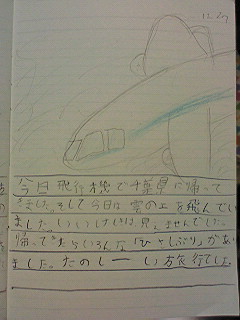 12/27
今日飛行機で千葉県に帰って
きました。そして今日は雲の上を飛んでい
ました。いいけしきは見えませんでした。
帰ってきたらいろんな「ひさしぶり」があり
ました。たのしーい旅行でした。